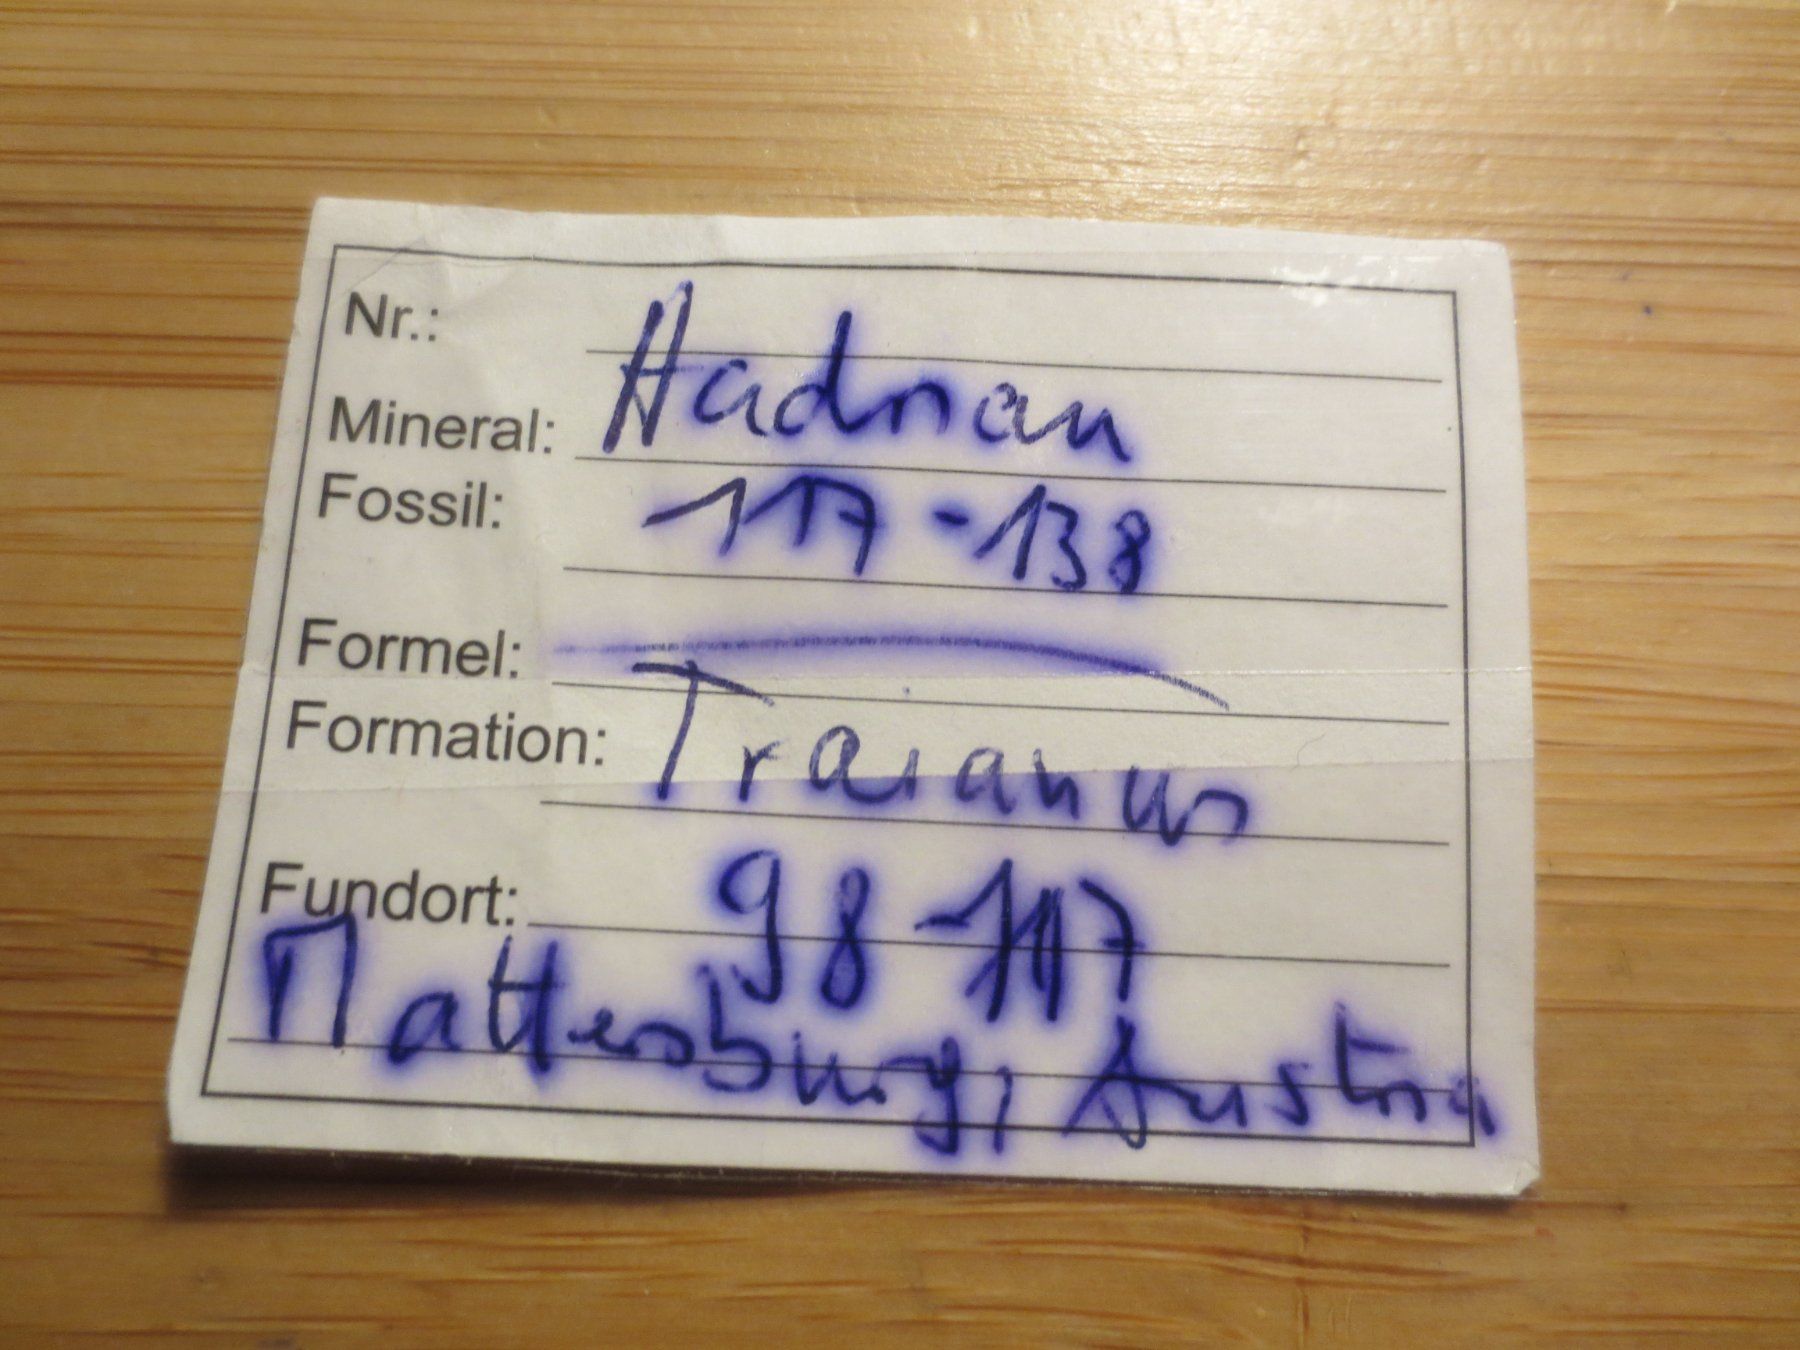 Nr.:
Mineral: Hadrian
Fossil: 117-138
Formel:
Formation: Traianus
Fundort: 98-117
Mattersburg, Austria